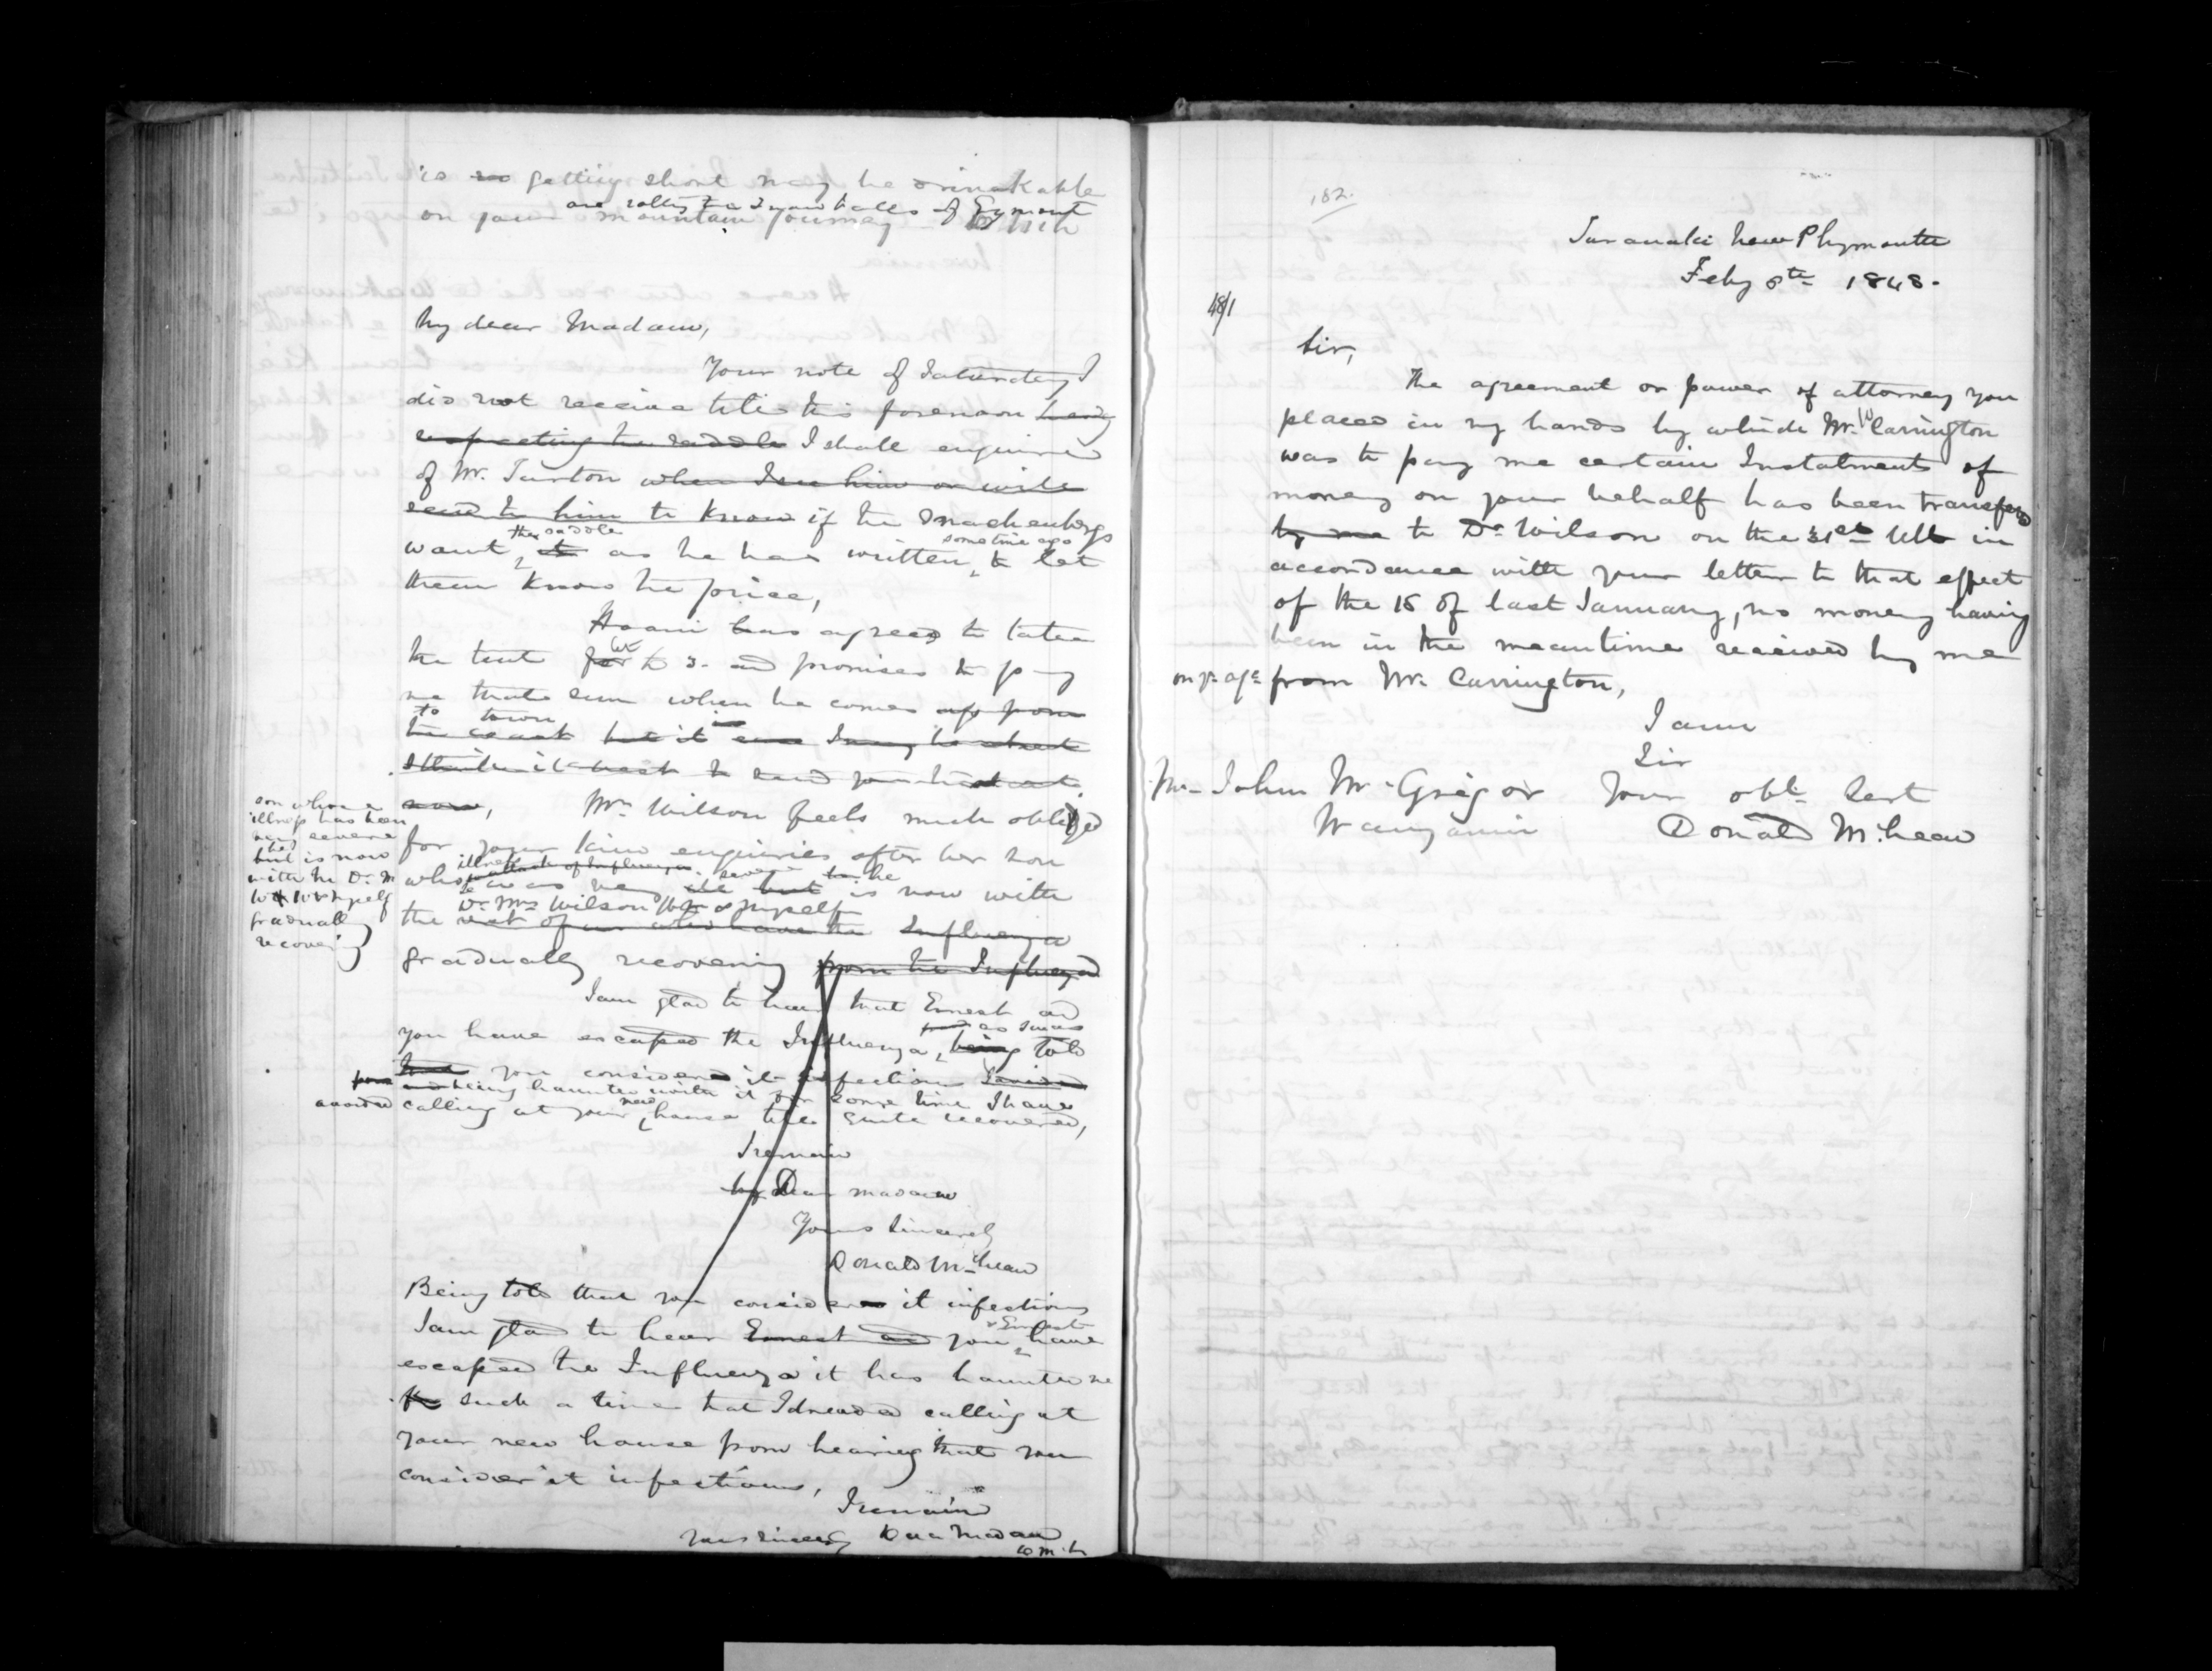 is so getting short may be drinkable
are rolling the snow balls of Egmont
on your mountain journey
My dear Madam,
Your note of Saturday I
did not receive till this forenoon
respecting the saddle I shall enquire
of Mr. Turton when I see him or will
send to him to know if the
the saddle sometime ago
want it as he has written to let
them know the price,
has agreed to take
the tent for and promises to pay
me that sum when he comes up from
to town
the coast but it may be
I think it best to send your
now, Mrs Wilson feels much obliged
for your kind enquiries after her son
illness attack of Influenza severe he
who was very ill but is now with
Dr. Mrs Wilson & myself
the rest of us who have the Influenza
gradually recovering from the Influenza
son whose
illness has been
very severe
but is now
with the Dr. M
W & myself
gradually
recovering
I am glad to hear that Ernest and
you have escaped the Influenza, being told
that you considered it infectious
and being haunted with it for some time I have
avoided calling at your new house till quite recovered,
I remain
My Dear Madam
Yours Sincerely
Donald McLean
Being told that you considered it infectious
& Ernest
I am glad to hear Ernest and you have
escaped the Influenza it has haunted me
for such a time that I dreaded calling at
your new house from hearing that you
consider it infectious,
I remain
Yours sincerely Dear Madam
D McL
182.
Taranaki New Plymouth
Feby 8th 1848.
48/1
Sir,
The agreement or power of attorney you
placed in my hands by which Mr. W Carrington
was to pay me certain Instalments of
money on your behalf has been transfered
by me to Dr. Wilson on the 31st Ulto in
accordance with your letter to that effect
of the 15 of last January, no money having
been in the meantime received by me
on yr a/c from Mr. Carrington,
I am
Sir
Mr. John McGregor Your obt. Sert
Wanganui Donald McLean